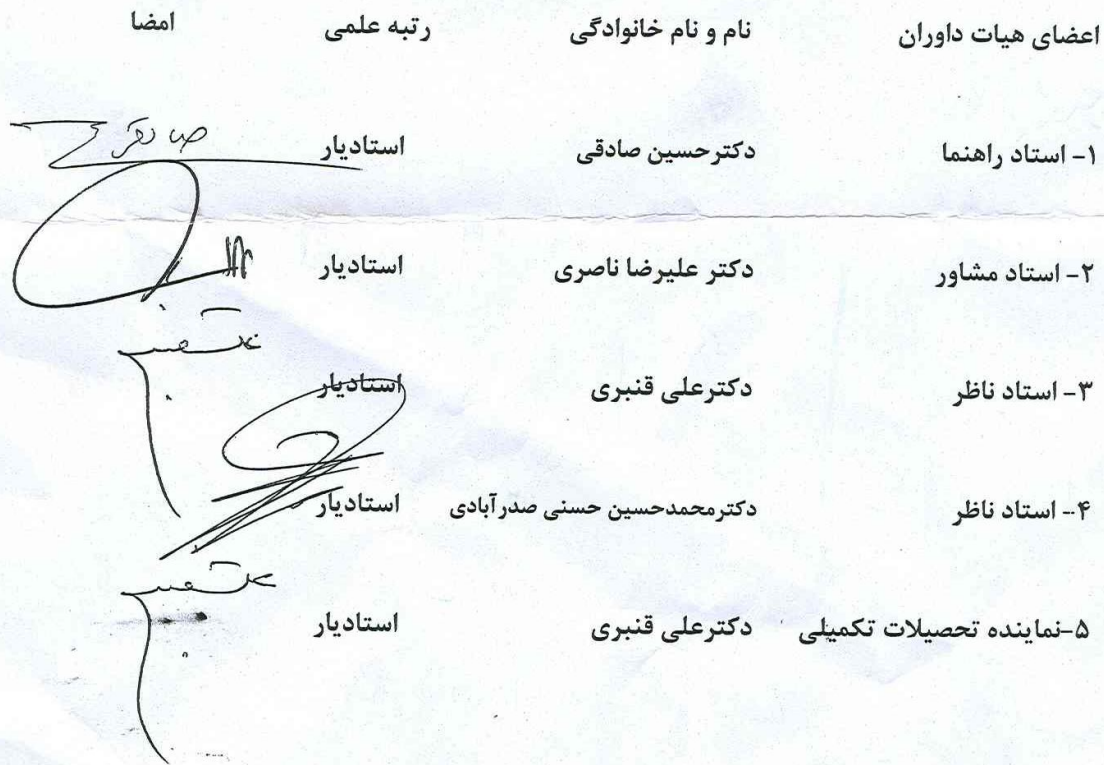 اعضای هیات داوران نام و نام خانوادگی رتبه علمی امضا
۱- استاد راهنما دکترحسین صادقی استادیار
۲- استاد مشاور دکتر علیرضا ناصری استادیار
۳- استاد ناظر دکترعلی قنبری استادیار
۴- استاد ناظر دکترمحمدحسین حسنی صدرآبادی استادیار
۵-نماینده تحصیلات تکمیلی دکترعلی قنبری استادیار